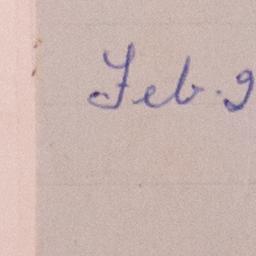 Feb. 9